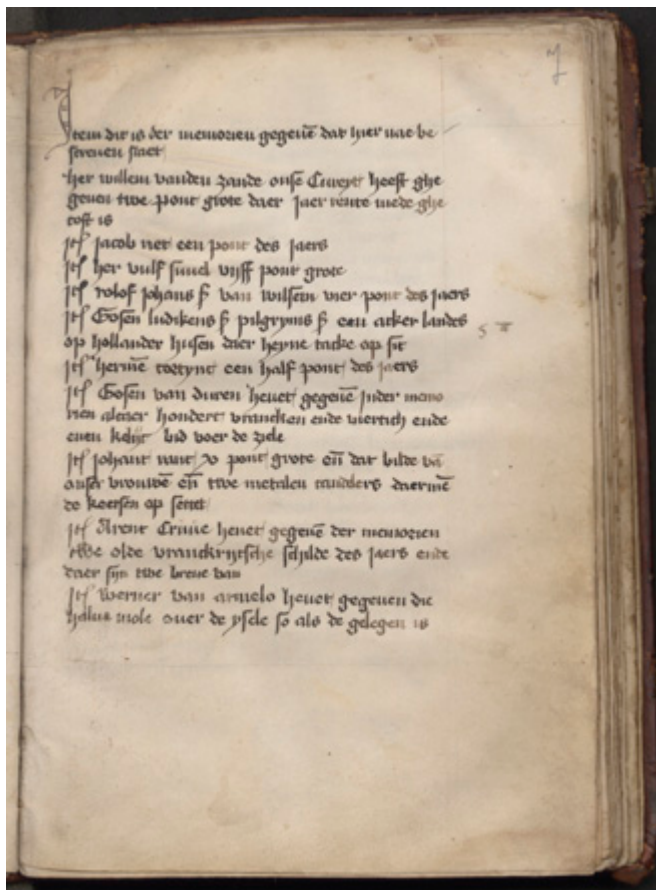 7
Item dit is der memorien gegeuē dat hier nae be
screuen staet
her willem vanden zande onse Cureyt heeft ghe
geuen twe pont grote daer jaer rente mede ghe
coft is
Itē jacob net een pont des jaers
Itē her wulf vijff pont grote
Itē rolof johans ß van wilsem vier pont des jaers
Itē Gosen ludikens ß pilgryms ß een acker landes
op hollander husen daer heyne tacke op sit
Itē hermē een half pont des jaers
Itē Gosen van duren heuet gegeuē inder memo
rien hondert vrancken ende viertich ende
enen kelijc bid voer de ziele
Itē johant xv pont grote eñ dat bilde vā
onser vrouwē eñ twe metalen daermē
de keersen op settet
Itē Arent Cruue heuet gegeuē der memorien
twe olde vranckrijtsche schilde des jaers ende
daer sijn twe breue van
Itē werner van armelo heuet gegeuen die
halue mole ouer de ysele so als de gelegen is